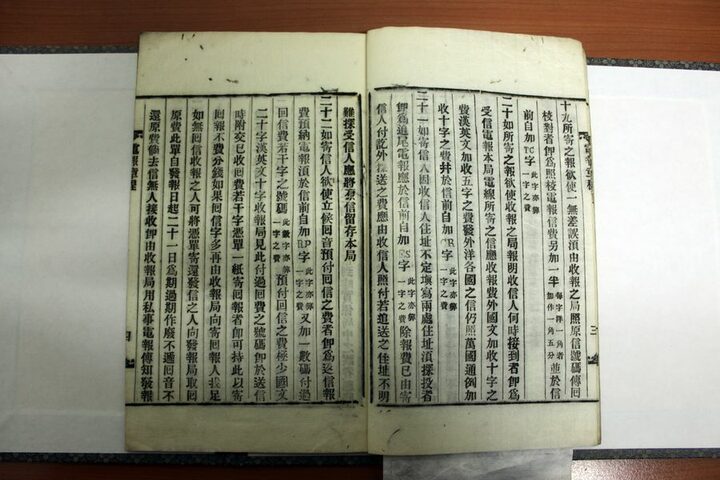 十九所寄之報欲使一無差誤須由收報之局照原信號碼傳回
校對者卽爲照校電信費另加一半每字洋一角者加作一角五分並於信
前自加TC字此字亦算一字之費
二十如所寄之報欲使收報之局報明收信人何時接到者卽爲
受信電報本局電線所寄之信應收報費外國文加收十字之
費漢英文加收五字之費發外洋各國之信仍照萬國通例加
收十字之費幷於信前自加CR字此字亦算一字之費
二十一如寄信人因收信人住址不定塡寫兩處住址須探投者
卽爲追尾電報應於信前自加FS字此字亦算一字之費除報費已由寄
信人付訖外接送之費應由收信人照付若追送之住址不明
三
難探受信人應將原信留存本局
二十二如寄信人欲使立候回音預付回信之費者卽爲返信報
費預納電報須於信前自加RP字此字亦算一字之費又加一數碼付過
回信費若干字之號碼此數字亦算一字之費預付回信之費極少國文
二十字漢英文十字收報局見此付過回費之號碼卽於送信
時附交已收回費若干字憑單一紙寄回報者卽可持此以寄
回報不費分錢如果回信字多再由收報局向寄回報人找足
如無回信收報之人可將憑單寄還發信之人向發報局取回
原費此單自發報日起二十一日爲期過期作廢不遞回音不
還原費倘去信無人接收卽由收報局用私事電報傳知發報
電報章程
四